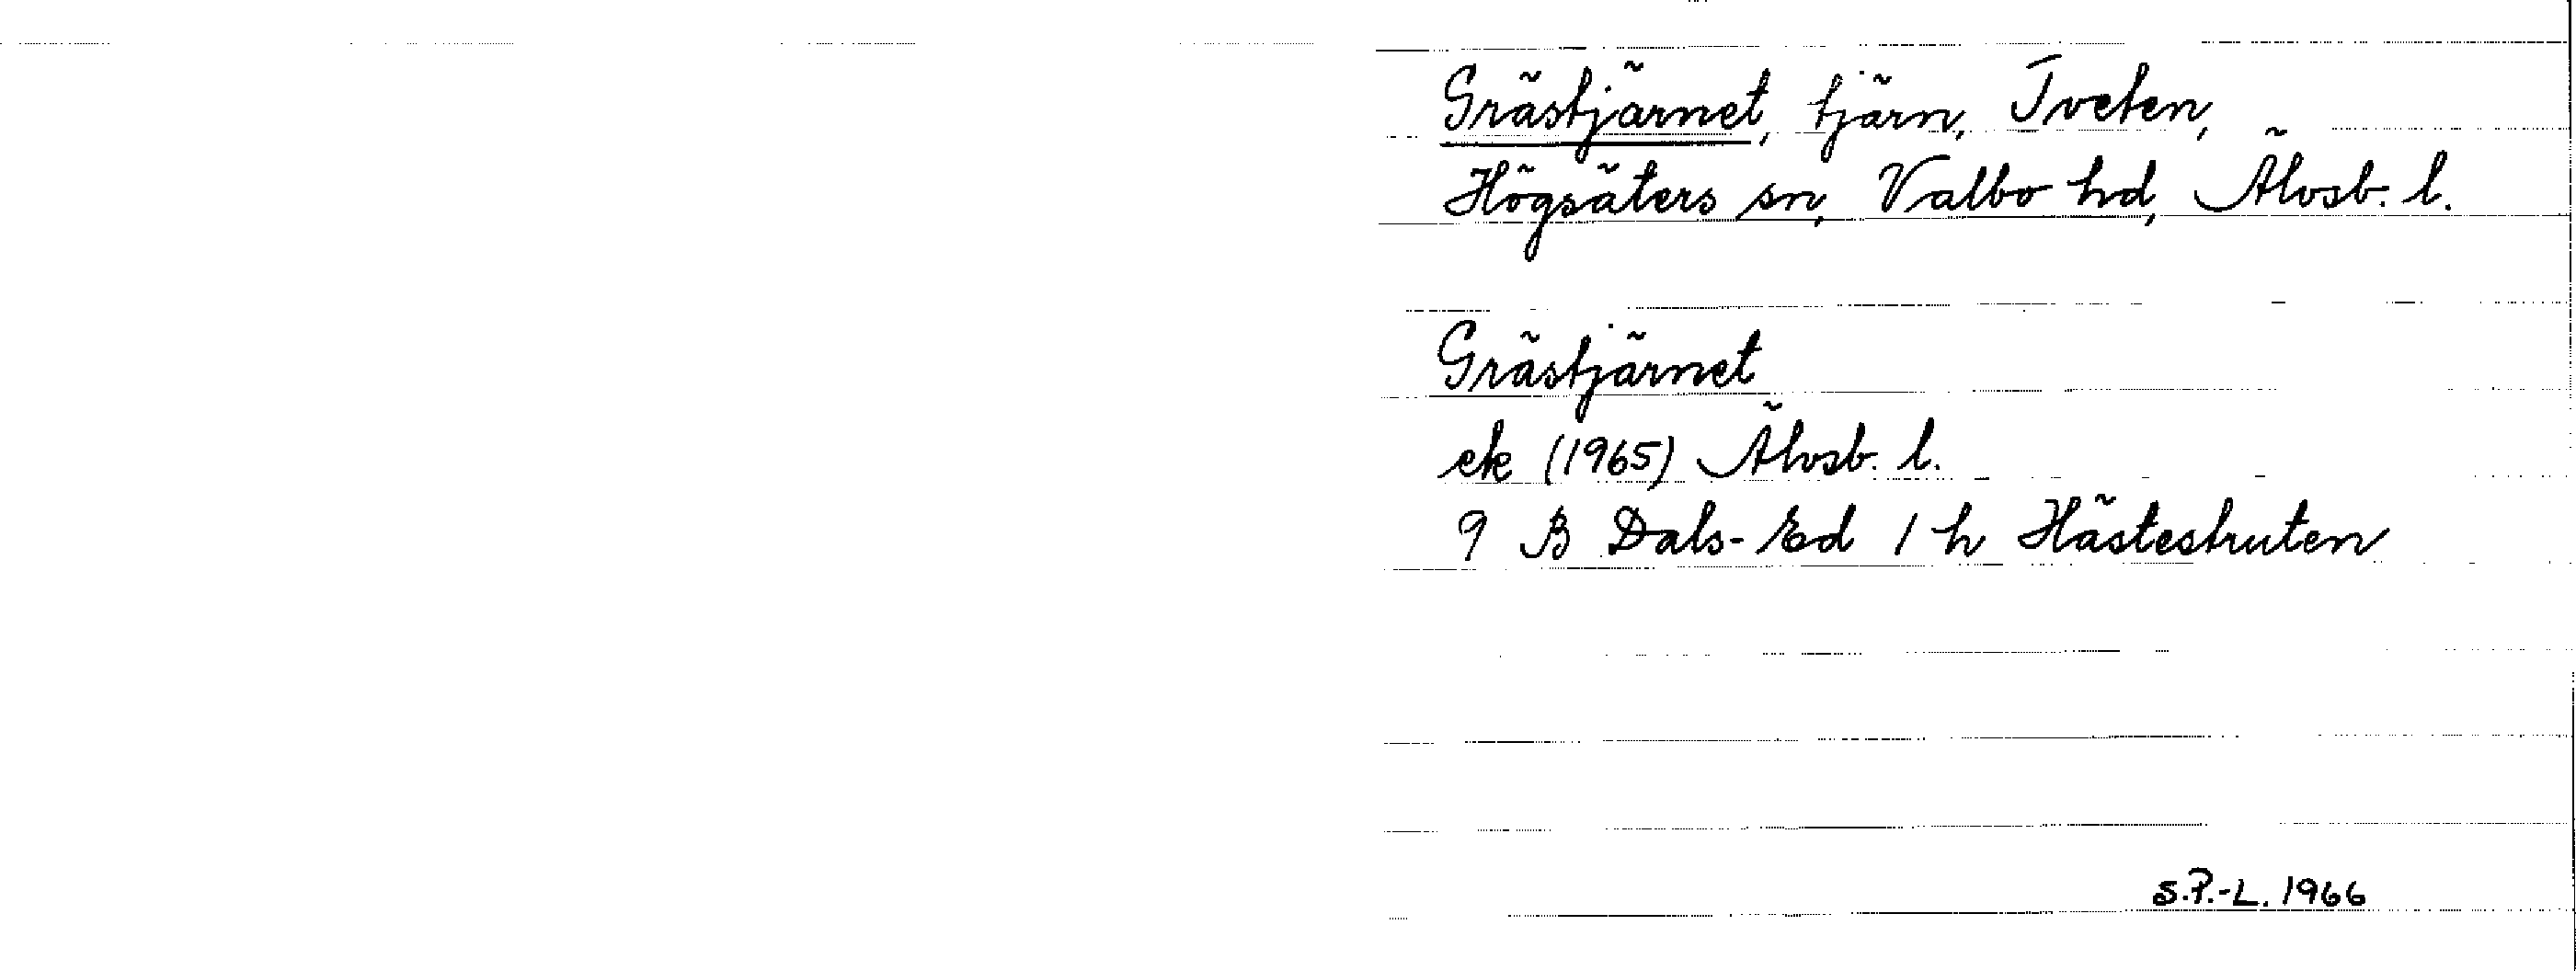 Grästjärnet, tjärn, Tveten,
Högsäters sn, Valbo hd, Älvsb. l.
Grästjärnet
ek (1965) Älvsb. l.
9 B Dals-Ed 1 h Hästestruten
S.P.-L. 1966